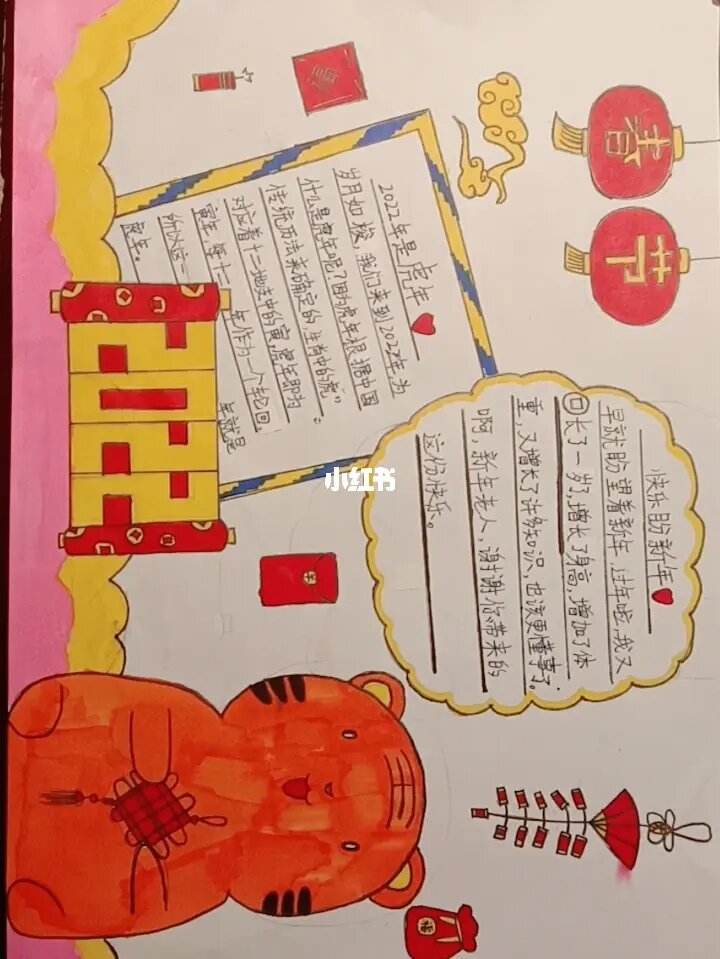 春节
2022年是虎年
岁月如梭，我们来到2022年为
什么是虎年呢？因为虎年根据中国
传统历法来确定的，生肖中的"虎"
对应着十二地支中的寅，虎年即为
寅年，每十二年作为一个轮回
所以这一年就是
虎年。
快乐的新年
早就盼望着新年，过年啦，我又
长了一岁，增长了身高，增加了体
重，又增长了许多知识，也该更懂事了。
啊，新年老人，谢谢你带来的
这份快乐。
2022
小红书
福